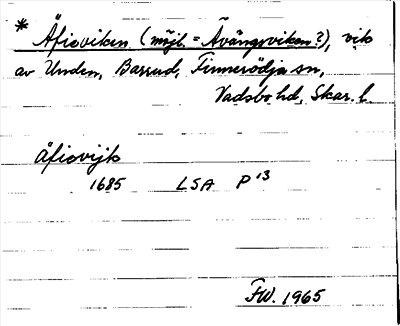 * Åfisviken (möjl. = Åvängsviken?), vik
av Unden, Barrud, Finnerödja sn,
Vadsbo hd, Skar. l.
åfisvijk
1685 LSA P 13
FW. 1965